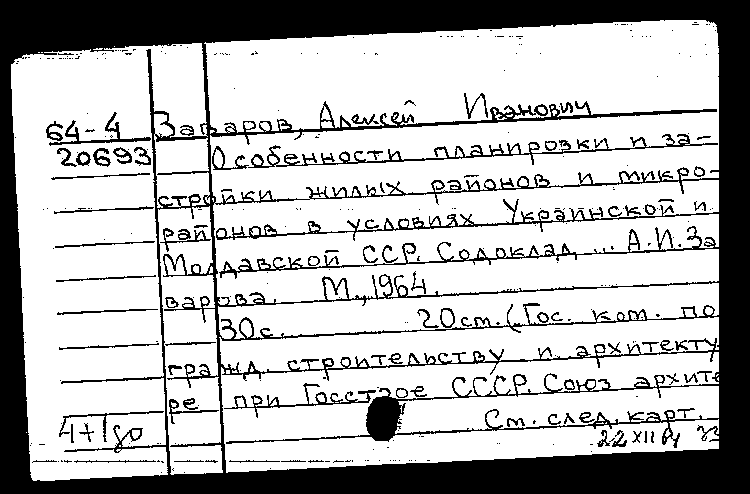 64-4 Заваров, Алексей Иванович
20693 Особенности планировки и за-
стройки жилых районов и микро-
районов в условиях Украинской и
Молдавской ССР. Содоклад ... А.И.За
варова. М., 1964.
30с. 20см. (Гос. ком. по
гражд. строительству и архитекту
ре при Госстрое СССР. Союз архите
См. след. карт.
4+1до
22 XII